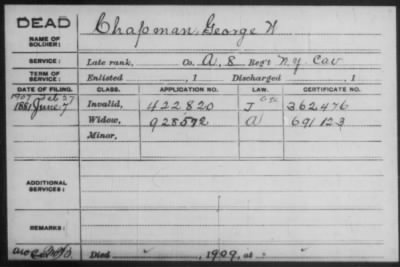 DEAD
NAME OF SOLDIER:
Chapman, George W
SERVICE:
Late rank, Co. A, 8 Reg't N.Y. Cav
TERM OF SERVICE:
Enlisted , 1 Discharged , 1
DATE OF FILING. CLASS. APPLICATION NO. LAW. CERTIFICATE NO.
1907 Feb 27
1881 June 7 Invalid, 422820 J 362476
Widow, 928592 a 691123
Minor,
ADDITIONAL SERVICES:
REMARKS:
Died , 1909, at